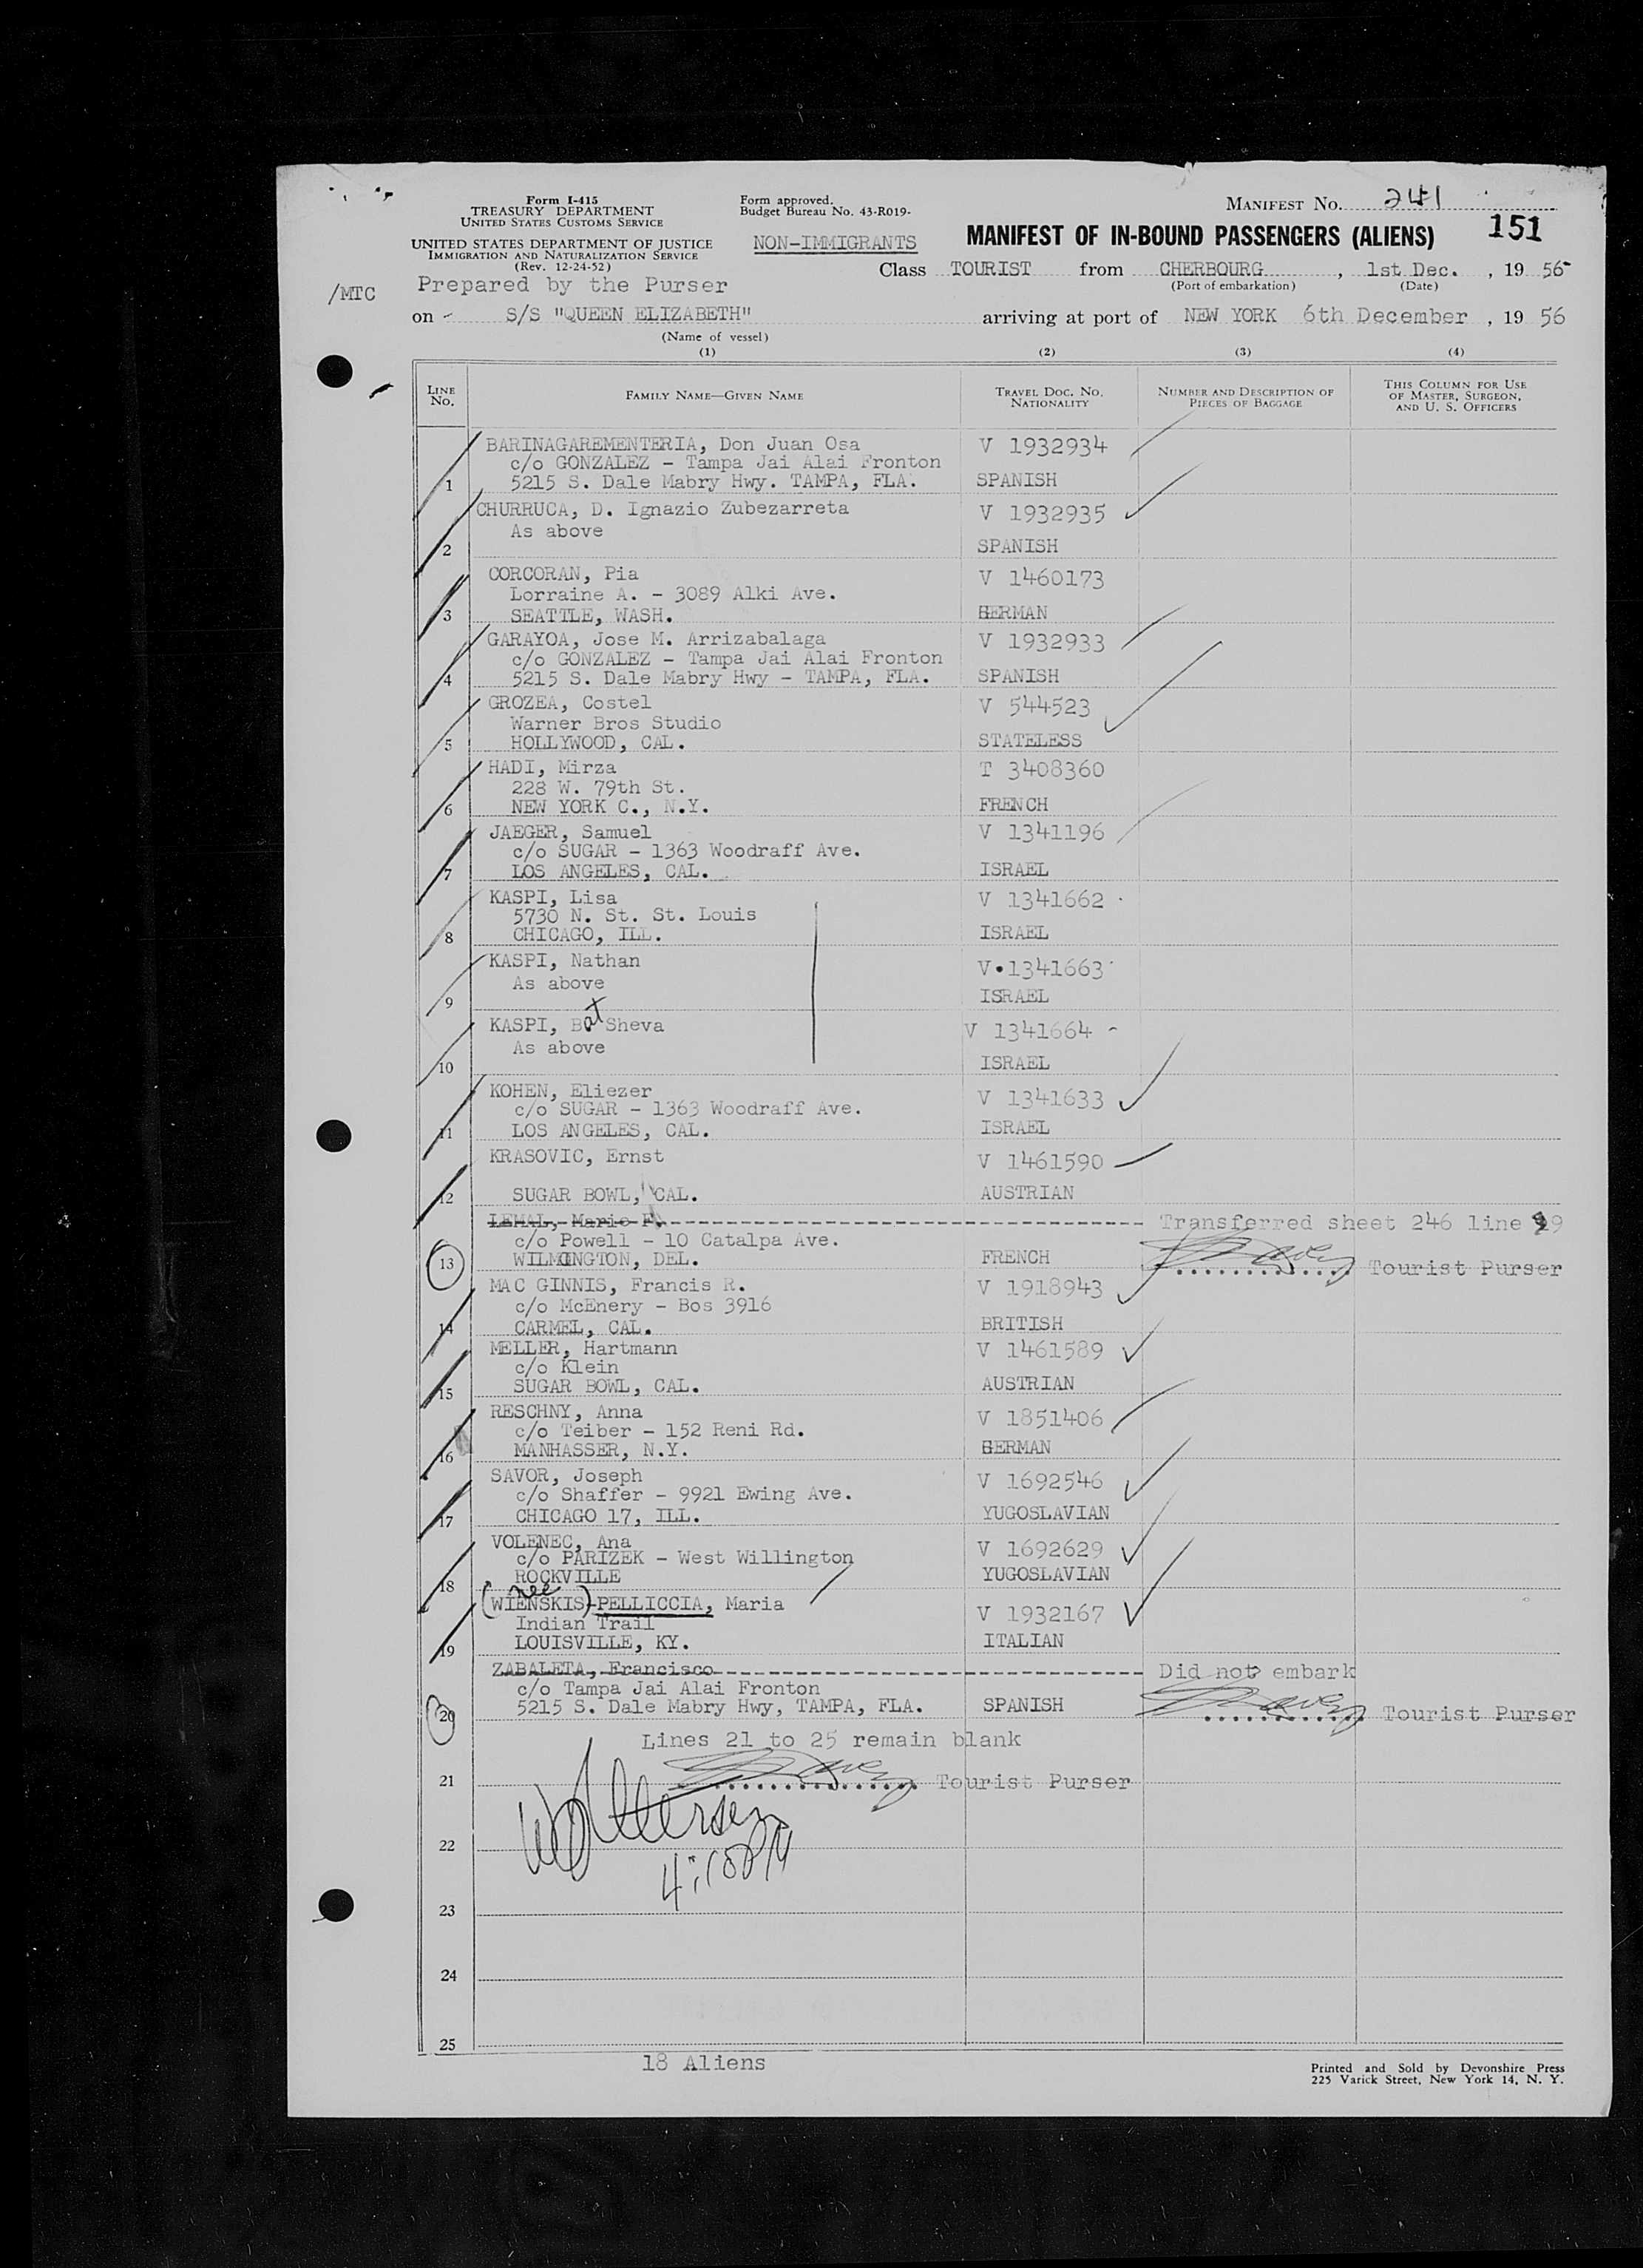 Form I-415
TREASURY DEPARTMENT
UNITED STATES CUSTOMS SERVICE
UNITED STATES DEPARTMENT OF JUSTICE
IMMIGRATION AND NATURALIZATION SERVICE
(Rev. 12-24-52)
Form approved.
Budget Bureau No. 43-R019-
NON-IMMIGRANTS
MANIFEST No. 241
MANIFEST OF IN-BOUND PASSENGERS (ALIENS) 151
Class TOURIST from CHERBOURG, 1st Dec., 19 56
(Port of embarkation) (Date)
/MTC Prepared by the Purser
on S/S "QUEEN ELIZABETH" arriving at port of NEW YORK 6th December, 19 56
(Name of vessel)
(1) (2) (3) (4)
LINE No. FAMILY NAME—GIVEN NAME TRAVEL DOC. NO. NATIONALITY NUMBER AND DESCRIPTION OF PIECES OF BAGGAGE THIS COLUMN FOR USE OF MASTER, SURGEON, AND U. S. OFFICERS
BARINAGAREMENTERIA, Don Juan Osa V 1932934
c/o GONZALEZ - Tampa Jai Alai Fronton
1 5215 S. Dale Mabry Hwy. TAMPA, FLA. SPANISH
CHURRUCA, D. Ignazio Zubezarreta V 1932935
As above
2 SPANISH
CORCORAN, Pia V 1460173
Lorraine A. - 3089 Alki Ave.
3 SEATTLE, WASH. GERMAN
GARAYOA, Jose M. Arrizabalaga V 1932933
c/o GONZALEZ - Tampa Jai Alai Fronton
4 5215 S. Dale Mabry Hwy - TAMPA, FLA. SPANISH
GROZEA, Costel V 544523
Warner Bros Studio
5 HOLLYWOOD, CAL. STATELESS
HADI, Mirza T 3408360
228 W. 79th St.
6 NEW YORK C., N.Y. FRENCH
JAEGER, Samuel V 1341196
c/o SUGAR - 1363 Woodraff Ave.
7 LOS ANGELES, CAL. ISRAEL
KASPI, Lisa V 1341662
5730 N. St. St. Louis
8 CHICAGO, ILL. ISRAEL
KASPI, Nathan V 1341663
As above
9 ISRAEL
KASPI, Bat Sheva V 1341664
As above
10 ISRAEL
KOHEN, Eliezer V 1341633
c/o SUGAR - 1363 Woodraff Ave.
11 LOS ANGELES, CAL. ISRAEL
KRASOVIC, Ernst V 1461590
12 SUGAR BOWL, CAL. AUSTRIAN
LEMAL, Marie F. Transferred sheet 246 line 9
c/o Powell - 10 Catalpa Ave.
13 WILMINGTON, DEL. FRENCH Tourist Purser
MAC GINNIS, Francis R. V 1918943
c/o McEnery - Bos 3916
14 CARMEL, CAL. BRITISH
MELLER, Hartmann V 1461589
c/o Klein
15 SUGAR BOWL, CAL. AUSTRIAN
RESCHNY, Anna V 1851406
c/o Teiber - 152 Reni Rd.
16 MANHASSER, N.Y. GERMAN
SAVOR, Joseph V 1692546
c/o Shaffer - 9921 Ewing Ave.
17 CHICAGO 17, ILL. YUGOSLAVIAN
VOLENEC, Ana V 1692629
c/o PARIZEK - West Willington
18 ROCKVILLE YUGOSLAVIAN
(nee WIENSKIS)-PELLICCIA, Maria V 1932167
Indian Trail
19 LOUISVILLE, KY. ITALIAN
ZABALETA, Francisco Did not embark
c/o Tampa Jai Alai Fronton
20 5215 S. Dale Mabry Hwy, TAMPA, FLA. SPANISH Tourist Purser
Lines 21 to 25 remain blank
21 Tourist Purser
22
23
24
25
18 Aliens
Printed and Sold by Devonshire Press
225 Varick Street, New York 14, N. Y.